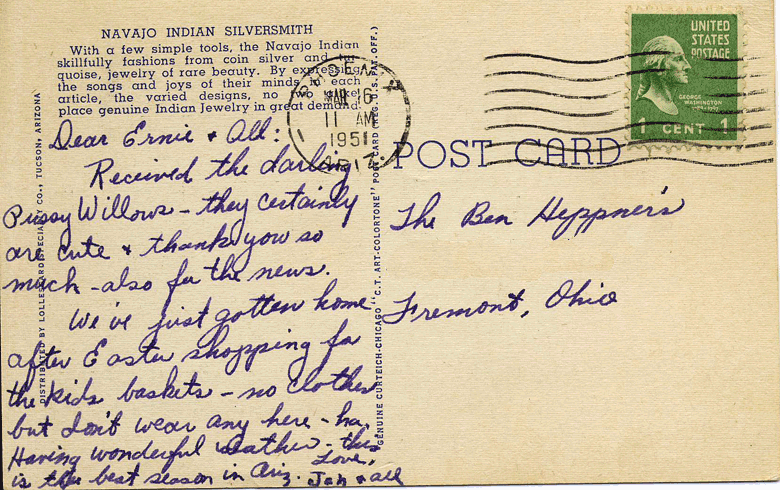 NAVAJO INDIAN SILVERSMITH
With a few simple tools, the Navajo Indian
skillfully fashions from coin silver and tur-
quoise, jewelry of rare beauty. By expressing
the songs and joys of their minds to each
article, the varied designs, no two alike,
place genuine Indian Jewelry in great demand.
Dear Ernie & All:
Received the darling
Pussy Willows - they certainly
are cute & thank you so
much - also for the news.
We've just gotten home
after Easter shopping for
the kids baskets - no clothes
but don't wear any here - ha.
Having wonderful weather - this
is the best season in Ariz.
Love,
Jan & all
DISTRIBUTED BY LOLLESGARD SPECIALTY CO., TUCSON, ARIZONA
GENUINE CURTEICH-CHICAGO "C.T. ART-COLORTONE" POST CARD (REG. U.S. PAT. OFF.)
MAR 6
11 AM
1951
ARIZ.
UNITED
STATES
POSTAGE
GEORGE
WASHINGTON
1 CENT 1
POST CARD
The Ben Heppner's
Fremont, Ohio